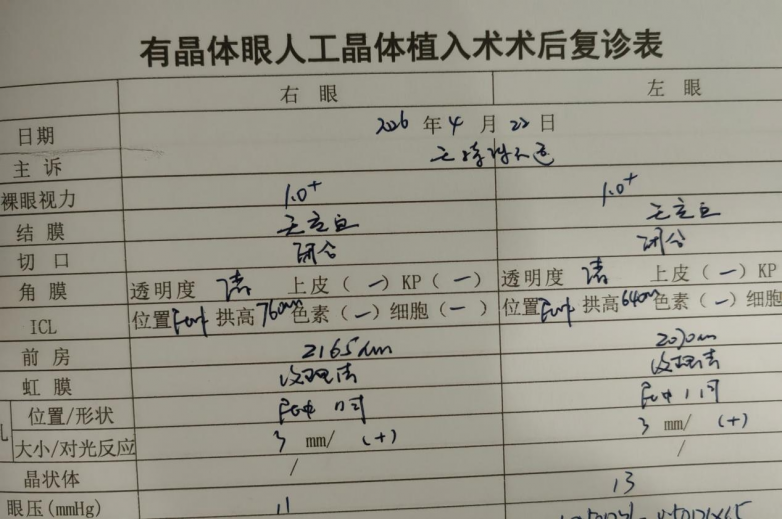 有晶体眼人工晶体植入术术后复诊表
右 眼 左 眼
日期 2026 年 4 月 22 日
主 诉 无特殊不适
裸眼视力 1.0+ 1.0+
结 膜 无充血 无充血
切 口 闭合 闭合
角 膜 透明度 清 上皮（—）KP（—） 透明度 清 上皮（—）KP（
ICL 位置 拱高 760um 色素（—）细胞（—） 位置 拱高 640um 色素（—）细胞
前 房 2165um 2070um
虹 膜 纹理清 纹理清
位置/形状 居中 居中
大小/对光反应 3 mm/ (+) 3 mm/ (+)
晶状体 / /
眼压(mmHg) 11 13